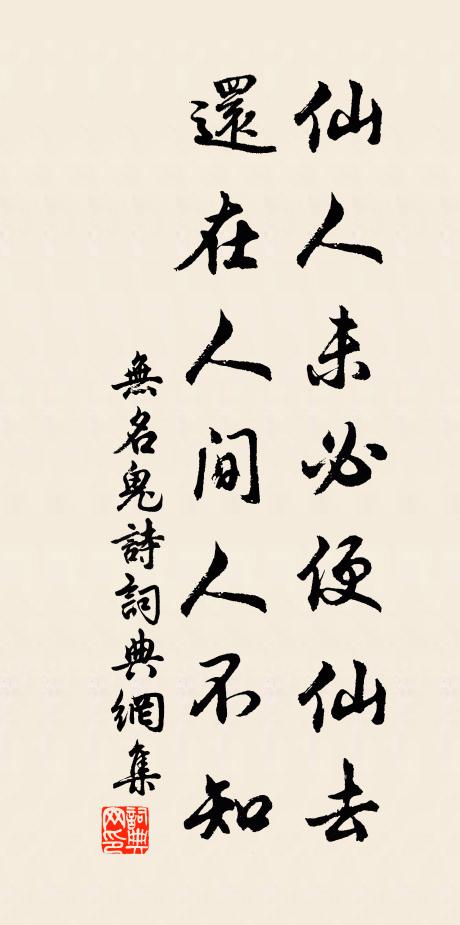 仙人未必便仙去
還在人間人不知
無名鬼詩詞典網集
詞典
网印